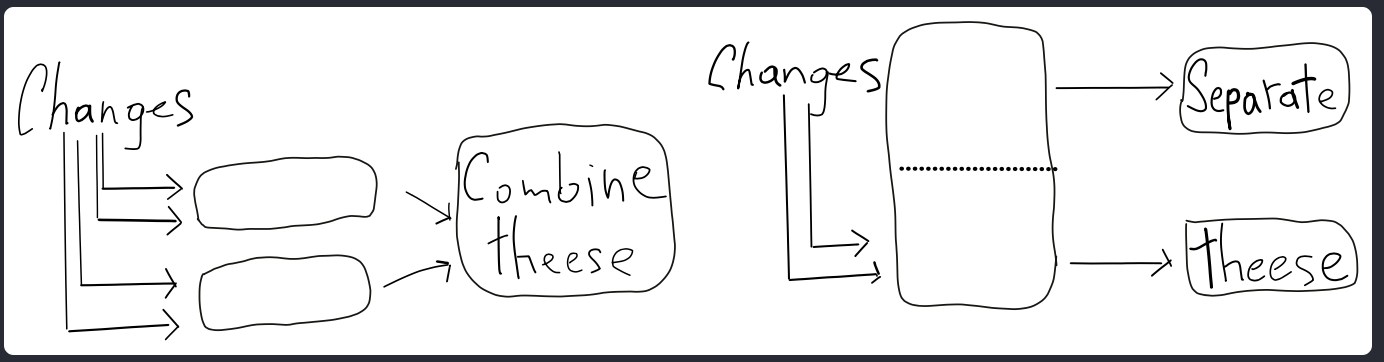 Changes
Combine
theese
Changes
Separate
theese